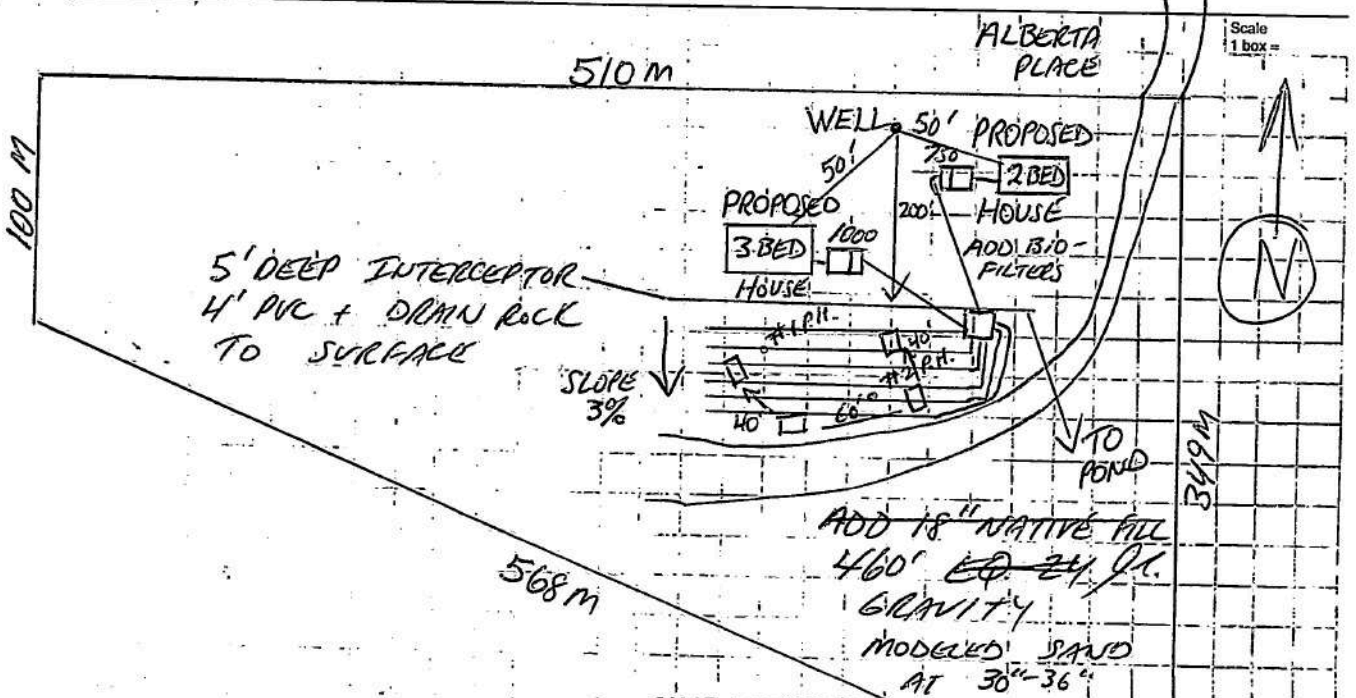 ALBERTA
PLACE
Scale
1 box =
510 M
100 M
WELL
50'
PROPOSED
750
2 BED
HOUSE
50'
200'
PROPOSED
3 BED
HOUSE
1000
ADD BIO-
FILTERS
N
5' DEEP INTERCEPTOR
4' PVC + DRAIN ROCK
TO SURFACE
#1 P.H.
40'
#2 P.H.
SLOPE
3%
40'
60'
TO
POND
349 M
568 M
ADD 18" NATIVE FILL
460'
GRAVITY
MODELED SAND
AT 30"-36"